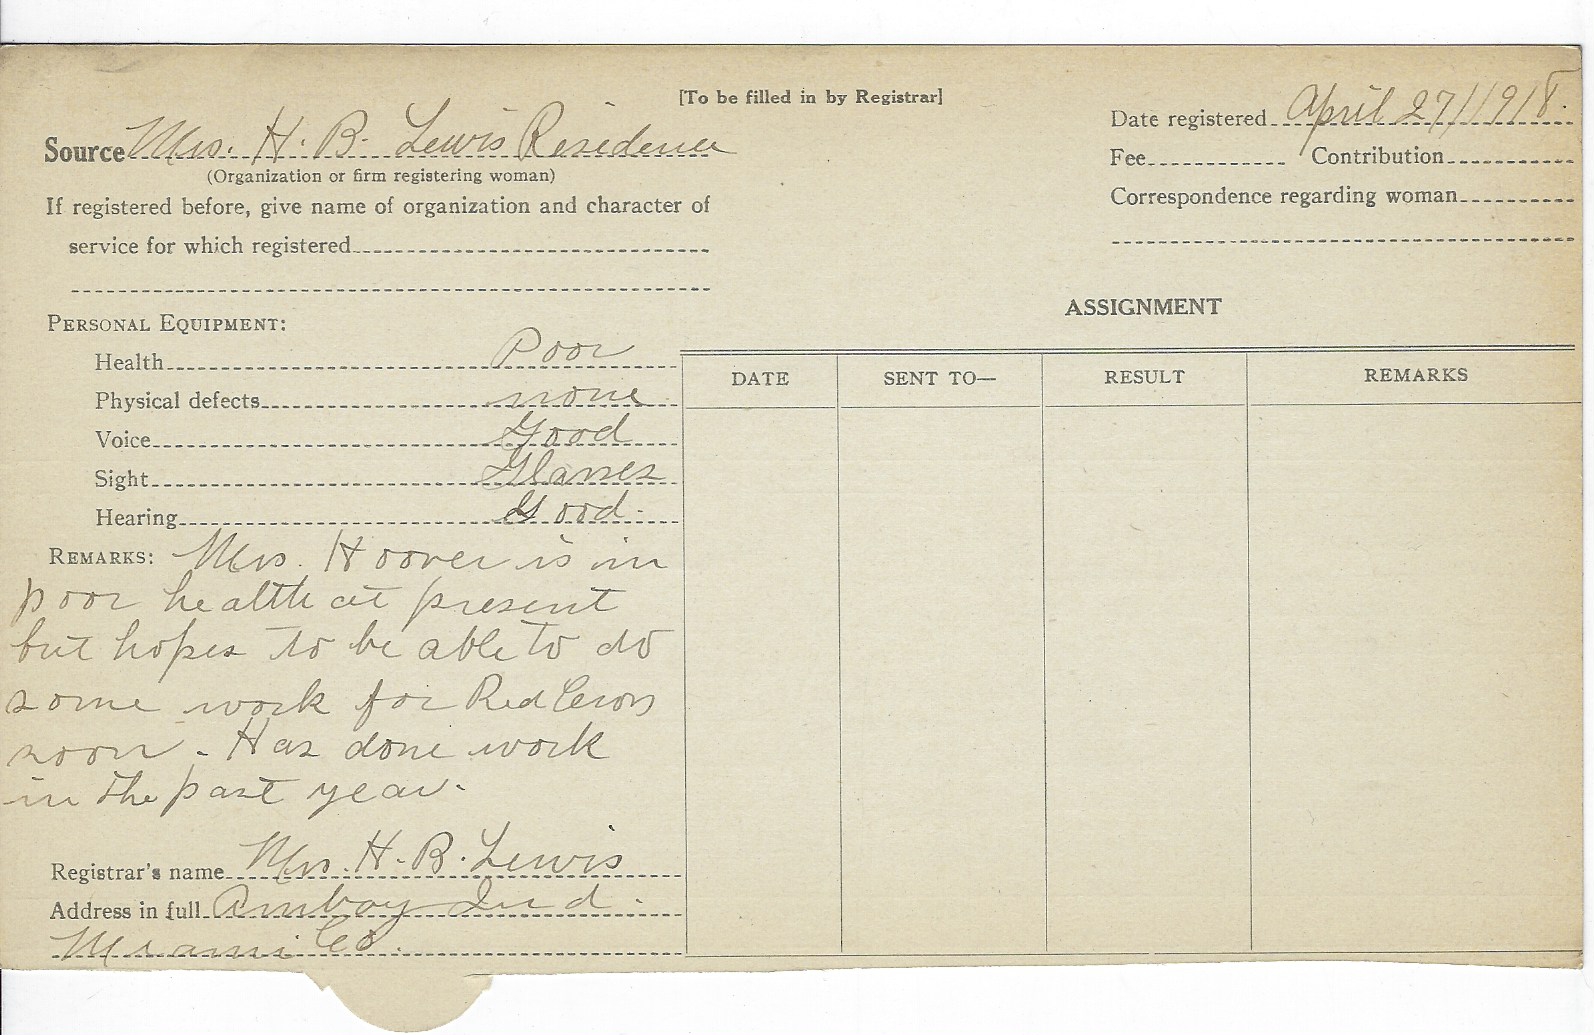 [To be filled in by Registrar]
Source Mrs. H. B. Lewis Residence
(Organization or firm registering woman)
If registered before, give name of organization and character of
service for which registered
Date registered April 27/1918.
Fee Contribution
Correspondence regarding woman
PERSONAL EQUIPMENT:
Health Poor
Physical defects none
Voice Good
Sight Glasses
Hearing Good.
REMARKS: Mrs. Hoover is in
poor health at present
but hopes to be able to do
some work for Red Cross
soon. Has done work
in the past year.
Registrar's name Mrs. H. B. Lewis
Address in full Amboy Ind.
Miami Co.
ASSIGNMENT
DATE SENT TO— RESULT REMARKS